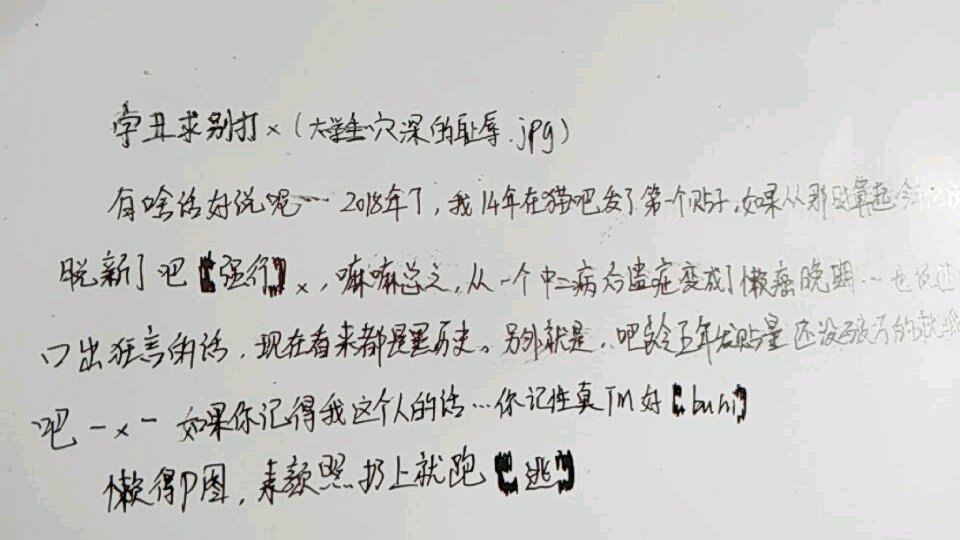 字丑求别打×(大学生穴深的耻辱.jpg)
有啥话好说呢… 2018年了,我14年在猫吧发了第一个贴子,如果从那时算起今年
脱新了吧【强行】×,嘛嘛总之,从一个中二病后遗症变成了懒癌晚期…也说过
口出狂言的话,现在看来都是黑历史。另外就是,吧龄五年发贴量还没破百的就我
吧 - × - 如果你记得我这个人的话…你记性真TM好【buni】
懒得P图,素颜照扔上就跑【逃】